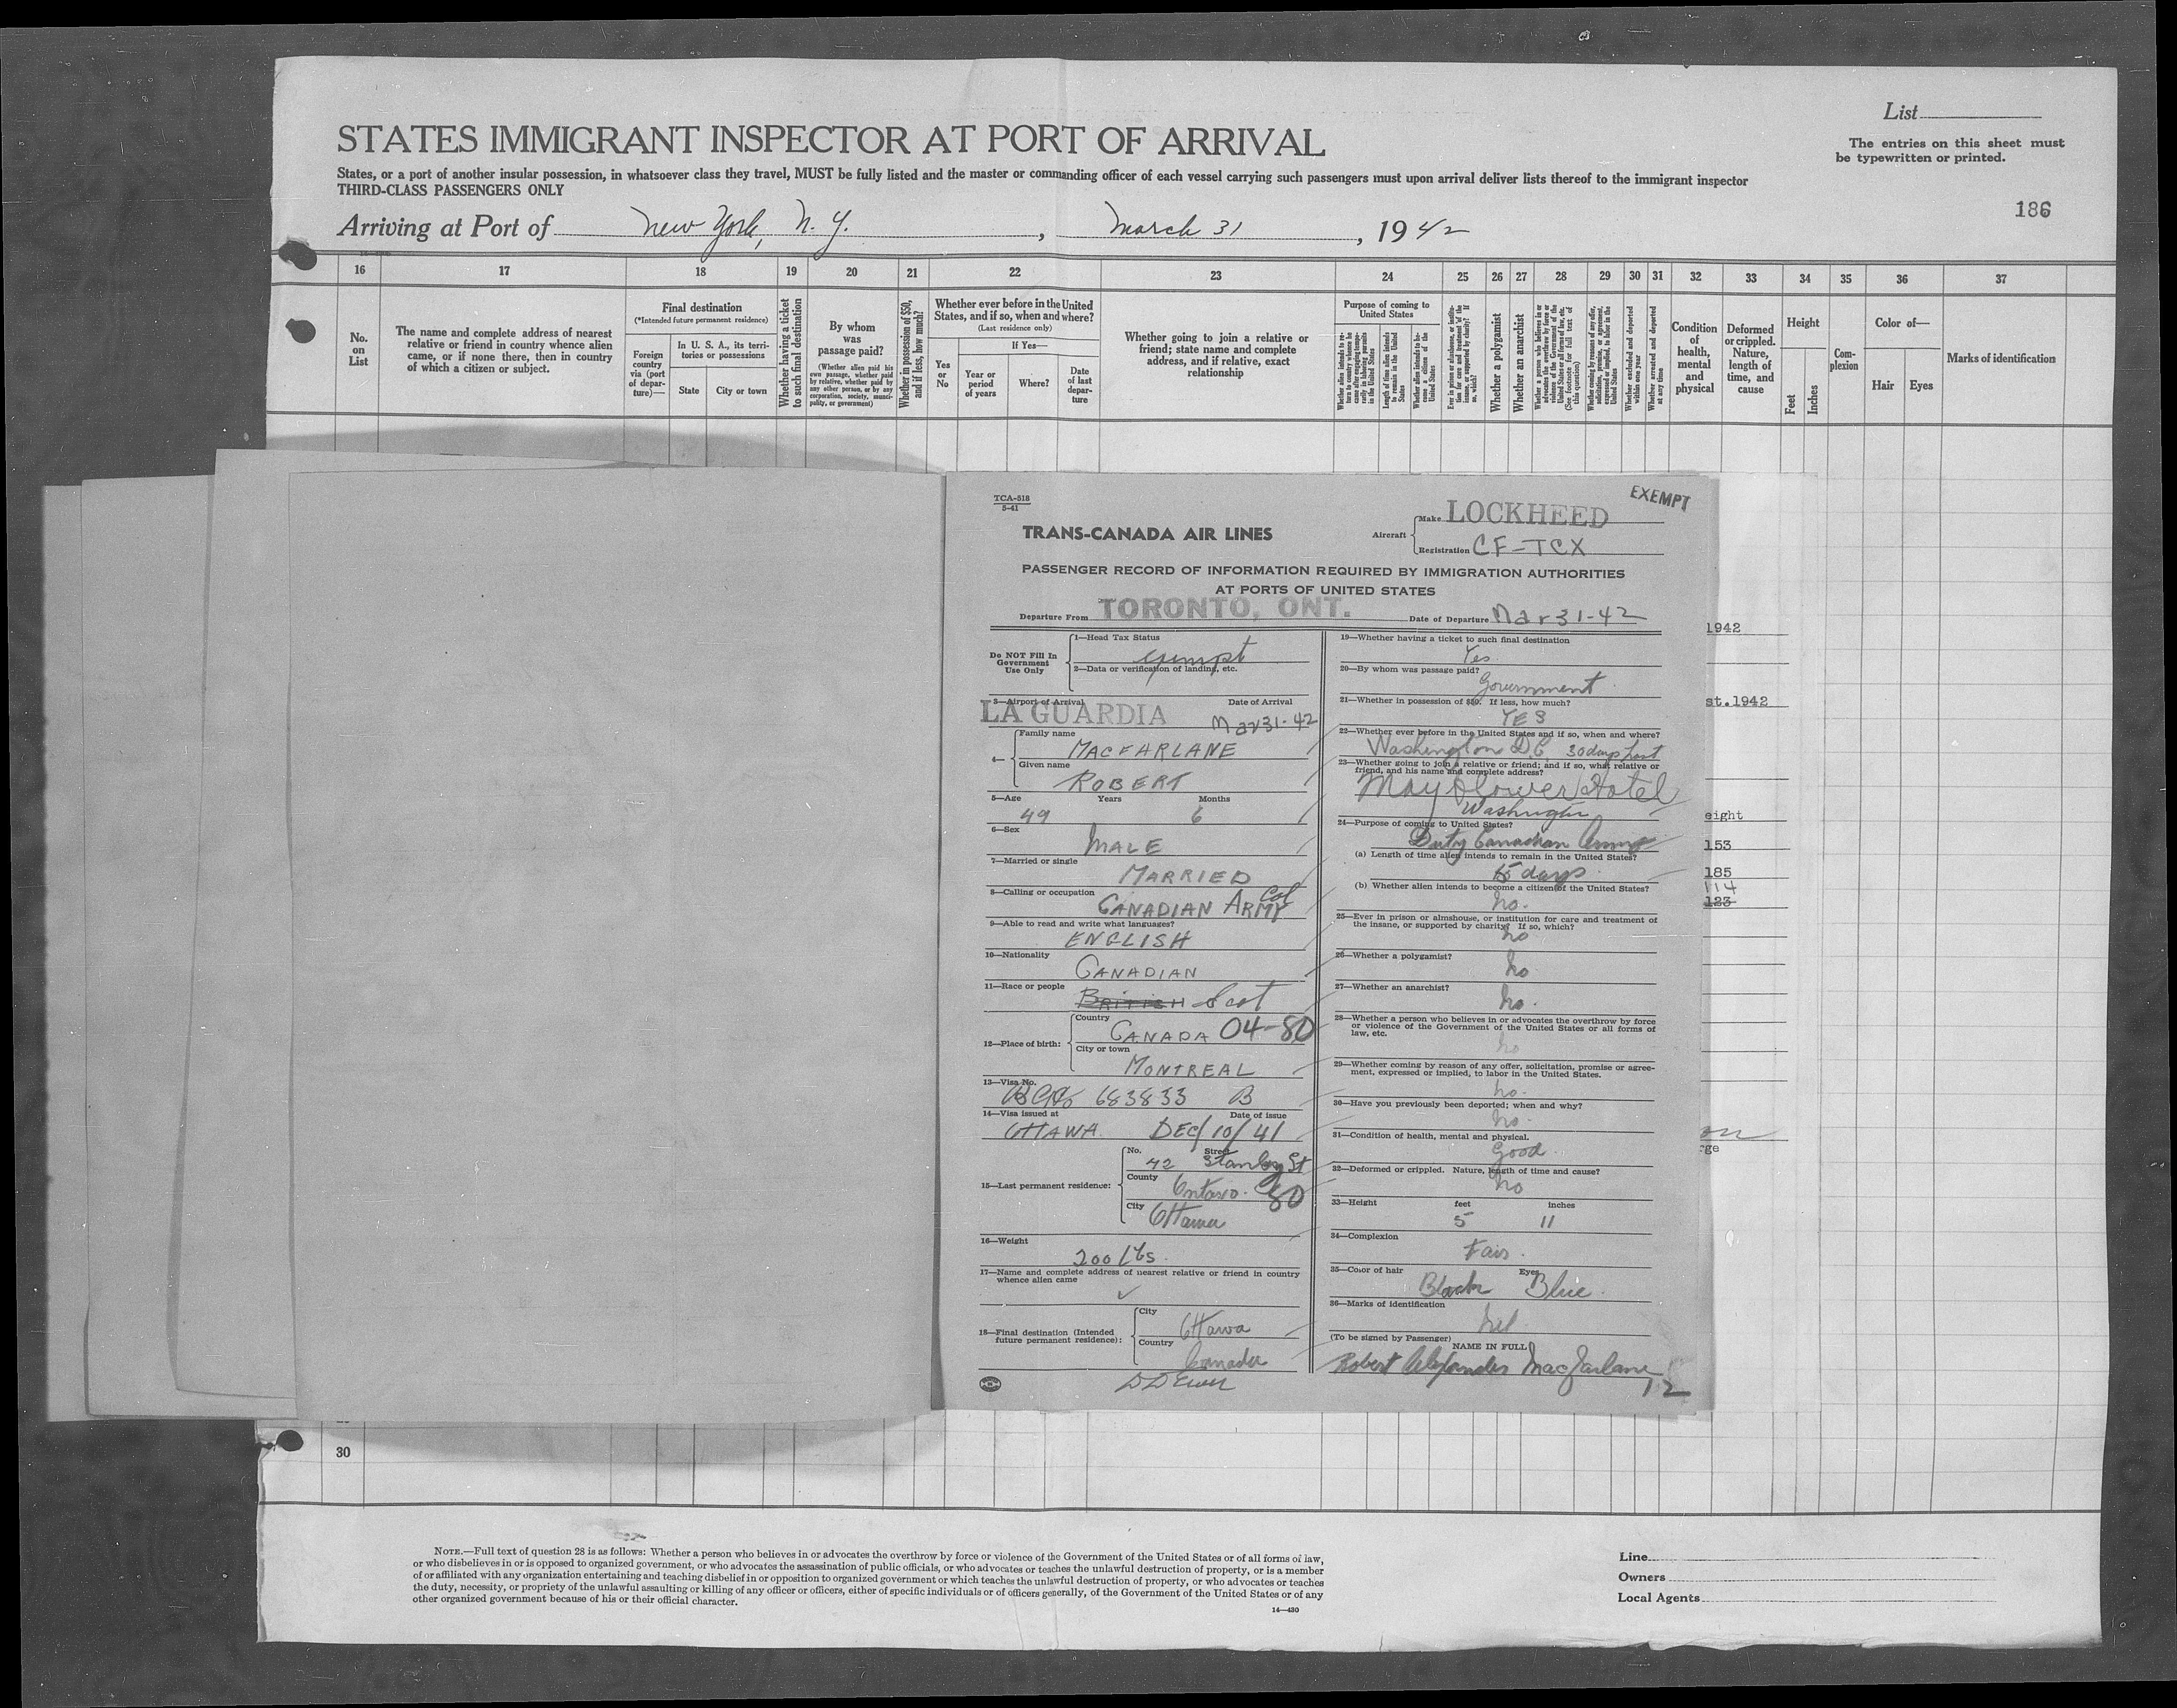 List
STATES IMMIGRANT INSPECTOR AT PORT OF ARRIVAL
The entries on this sheet must
be typewritten or printed.
States, or a port of another insular possession, in whatsoever class they travel, MUST be fully listed and the master or commanding officer of each vessel carrying such passengers must upon arrival deliver lists thereof to the immigrant inspector
THIRD-CLASS PASSENGERS ONLY
186
Arriving at Port of New York, N. Y., March 31, 1942
16 17 18 19 20 21 22 23 24 25 26 27 28 29 30 31 32 33 34 35 36 37
No.
on
List
The name and complete address of nearest
relative or friend in country whence alien
came, or if none there, then in country
of which a citizen or subject.
Final destination
(*Intended future permanent residence)
Foreign
country
via (port
of depar-
ture)—
In U. S. A., its terri-
tories or possessions
State City or town
Whether having a ticket
to such final destination
By whom
was
passage paid?
(Whether alien paid his
own passage, whether paid
by relative, whether paid by
any other person, or by any
corporation, society, munici-
pality, or government)
Whether in possession of $50,
and if less, how much?
Whether ever before in the United
States, and if so, when and where?
(Last residence only)
Yes
or
No
If Yes—
Year or
period
of years
Where?
Date
of last
depar-
ture
Whether going to join a relative or
friend; state name and complete
address, and if relative, exact
relationship
Purpose of coming to
United States
Whether a polygamist
Whether an anarchist
Condition
of
health,
mental
and
physical
Deformed
or crippled.
Nature,
length of
time, and
cause
Height
Feet
Inches
Com-
plexion
Color of—
Hair Eyes
Marks of identification
TCA-518
5-41
EXEMPT
TRANS-CANADA AIR LINES
Aircraft
Make LOCKHEED
Registration CF-TCX
PASSENGER RECORD OF INFORMATION REQUIRED BY IMMIGRATION AUTHORITIES
AT PORTS OF UNITED STATES
Departure From TORONTO, ONT. Date of Departure Mar 31-42
Do NOT Fill In
Government
Use Only
1—Head Tax Status
exempt
2—Data or verification of landing, etc.
3—Airport of Arrival Date of Arrival
LA GUARDIA Mar 31-42
4—
Family name
MACFARLANE
Given name
ROBERT
5—Age Years Months
49 6
6—Sex
MALE
7—Married or single
MARRIED
8—Calling or occupation
CANADIAN ARMY Col
9—Able to read and write what languages?
ENGLISH
10—Nationality
CANADIAN
11—Race or people
BRITISH Scot
12—Place of birth:
Country
CANADA 04-80
City or town
MONTREAL
13—Visa No.
683833 B
14—Visa issued at Date of issue
OTTAWA DEC/10/41
15—Last permanent residence:
No. Street
42 Stanley St
County
Ontario 80
City
Ottawa
16—Weight
200 Lbs.
17—Name and complete address of nearest relative or friend in country
whence alien came
✓
18—Final destination (Intended
future permanent residence):
City
Ottawa
Country
Canada
19—Whether having a ticket to such final destination
Yes
20—By whom was passage paid?
Government
21—Whether in possession of $50. If less, how much?
YES
22—Whether ever before in the United States and if so, when and where?
Washington D.C 30 days last
23—Whether going to join a relative or friend; and if so, what relative or
friend, and his name and complete address?
Mayflower Hotel
Washington
24—Purpose of coming to United States?
Duty Canadian Army
(a) Length of time alien intends to remain in the United States?
15 days
(b) Whether alien intends to become a citizen of the United States?
no.
25—Ever in prison or almshouse, or institution for care and treatment of
the insane, or supported by charity? If so, which?
no
26—Whether a polygamist?
no
27—Whether an anarchist?
no.
28—Whether a person who believes in or advocates the overthrow by force
or violence of the Government of the United States or all forms of
law, etc.
no
29—Whether coming by reason of any offer, solicitation, promise or agree-
ment, expressed or implied, to labor in the United States.
no.
30—Have you previously been deported; when and why?
no.
31—Condition of health, mental and physical.
Good.
32—Deformed or crippled. Nature, length of time and cause?
no
33—Height feet inches
5 11
34—Complexion
Fair.
35—Color of hair Eyes
Black Blue.
36—Marks of identification
nil.
(To be signed by Passenger)
NAME IN FULL
Robert Alexander MacFarlane
12
1942
st.1942
eight
153
185
114
123
rge
30
NOTE.—Full text of question 28 is as follows: Whether a person who believes in or advocates the overthrow by force or violence of the Government of the United States or of all forms of law,
or who disbelieves in or is opposed to organized government, or who advocates the assassination of public officials, or who advocates or teaches the unlawful destruction of property, or is a member
of or affiliated with any organization entertaining and teaching disbelief in or opposition to organized government or which teaches the unlawful destruction of property, or who advocates or teaches
the duty, necessity, or propriety of the unlawful assaulting or killing of any officer or officers, either of specific individuals or of officers generally, of the Government of the United States or of any
other organized government because of his or their official character.
14—430
Line
Owners
Local Agents